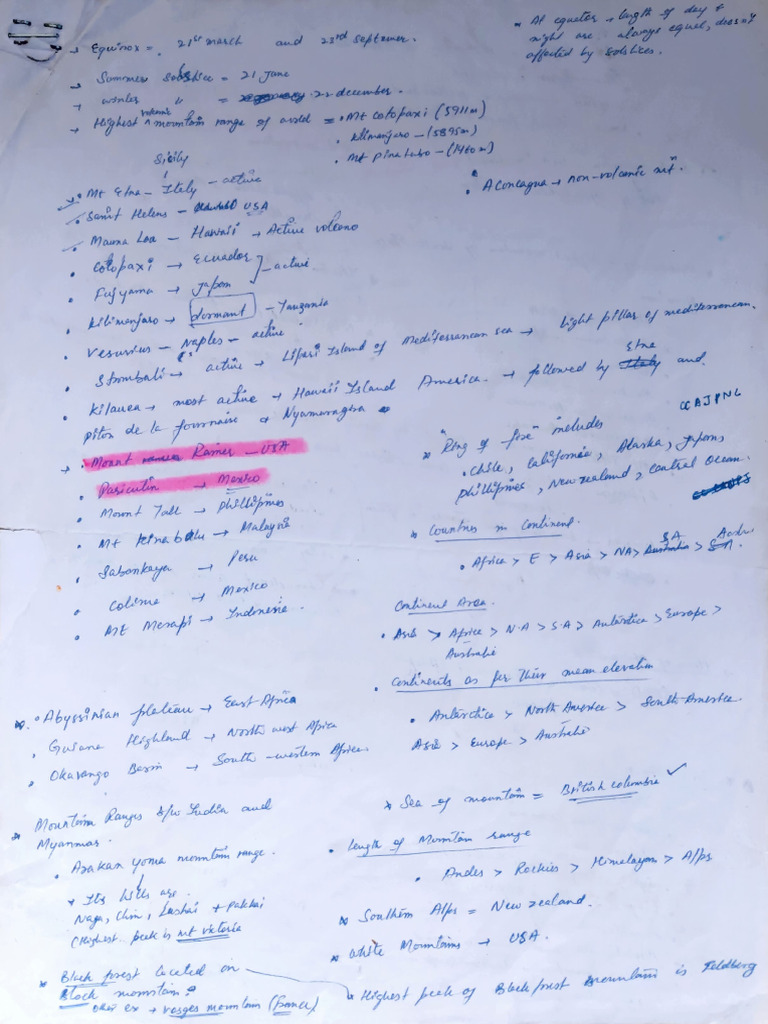 → Equinox = 21st march and 23rd september.
* At equator → length of day &
night are always equal, doesn't
affected by solstices.
→ Summer solstice = 21 June
→ winter " = 22 december.
→ Highest volcanic mountain range of world = • Mt cotopaxi (5911m)
• kilimanjaro – (5895m)
• Mt pinatubo – (1460m)
Sicily
• Mt Etna – Italy – active
• Aconcagua → non-volcanic mt.
• Saint Helens – USA
• Mauna Loa – Hawaii → Active volcano
• Cotopaxi → Ecuador
• Fujyama → Japan – active
• Kilimanjaro → dormant – Tanzania
• Vesuvius – Naples – active
• Stromboli → active → Lipari Island of Mediterranean sea → Light pillar of mediterranean.
• Kilauea → most active → Hawaii Island America. → followed by Etna and
piton de la fournaise & Nyamuragira
→ • Mount Rainer – USA
• Paricutin → Mexico
• Mount Taal → phillipines
• Mt Kinabalu → Malaysia
• Sabankaya → Peru
• Colima → Mexico
• Mt Merapi → Indonesia.
CCAJPNC
* "Ring of fire" includes
• chile, California, Alaska, Japan,
phillipines, New zealand, Central Ocean.
* Countries in Continent.
• Africa > E > Asia > NA > SA >
Continent Area.
• Asia > Africa > N.A > S.A > Antarctica > Europe >
Australia
• Continents as per their mean elevation
• Antarctica > North America > South America.
Asia > Europe > Australia
* • Abyssinian plateau → East Africa
• Guiana Highland → North west Africa
• Okavango Basin → South-western Africa.
* Sea of mountain = British colombia ✓
* Mountain Ranges b/w India and
Myanmar.
• Arakan yoma mountain range.
* Its hills are
Naga, Chin, Lushai & Patkai
(Highest peak is mt victoria
• Length of Mountain range
• Andes > Rockies > Himalayan > Alps
* Southern Alps = New zealand.
* White Mountains → USA.
* Black forest located on
Block mountain.
other ex → vosges mountain (france)
* Highest peak of Black forest mountain is Feldberg